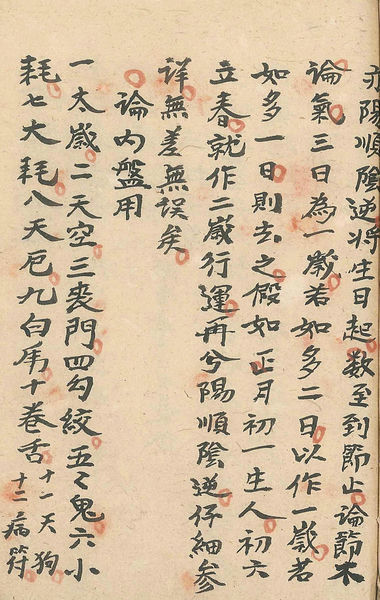 亦陽順陰逆將生日起数至到節止論節木
論氣三日為一歲若如多二日以作一歲若
如多一日則去之假如正月初一生人初六
立春就作二歲行運再兮陽順陰逆仔細參
詳無差無误矣
論内盤用
一太歲二天空三喪門四勾絞五〻鬼六小
耗七大耗八天厄九白虎十卷舌十一天狗
十二病符